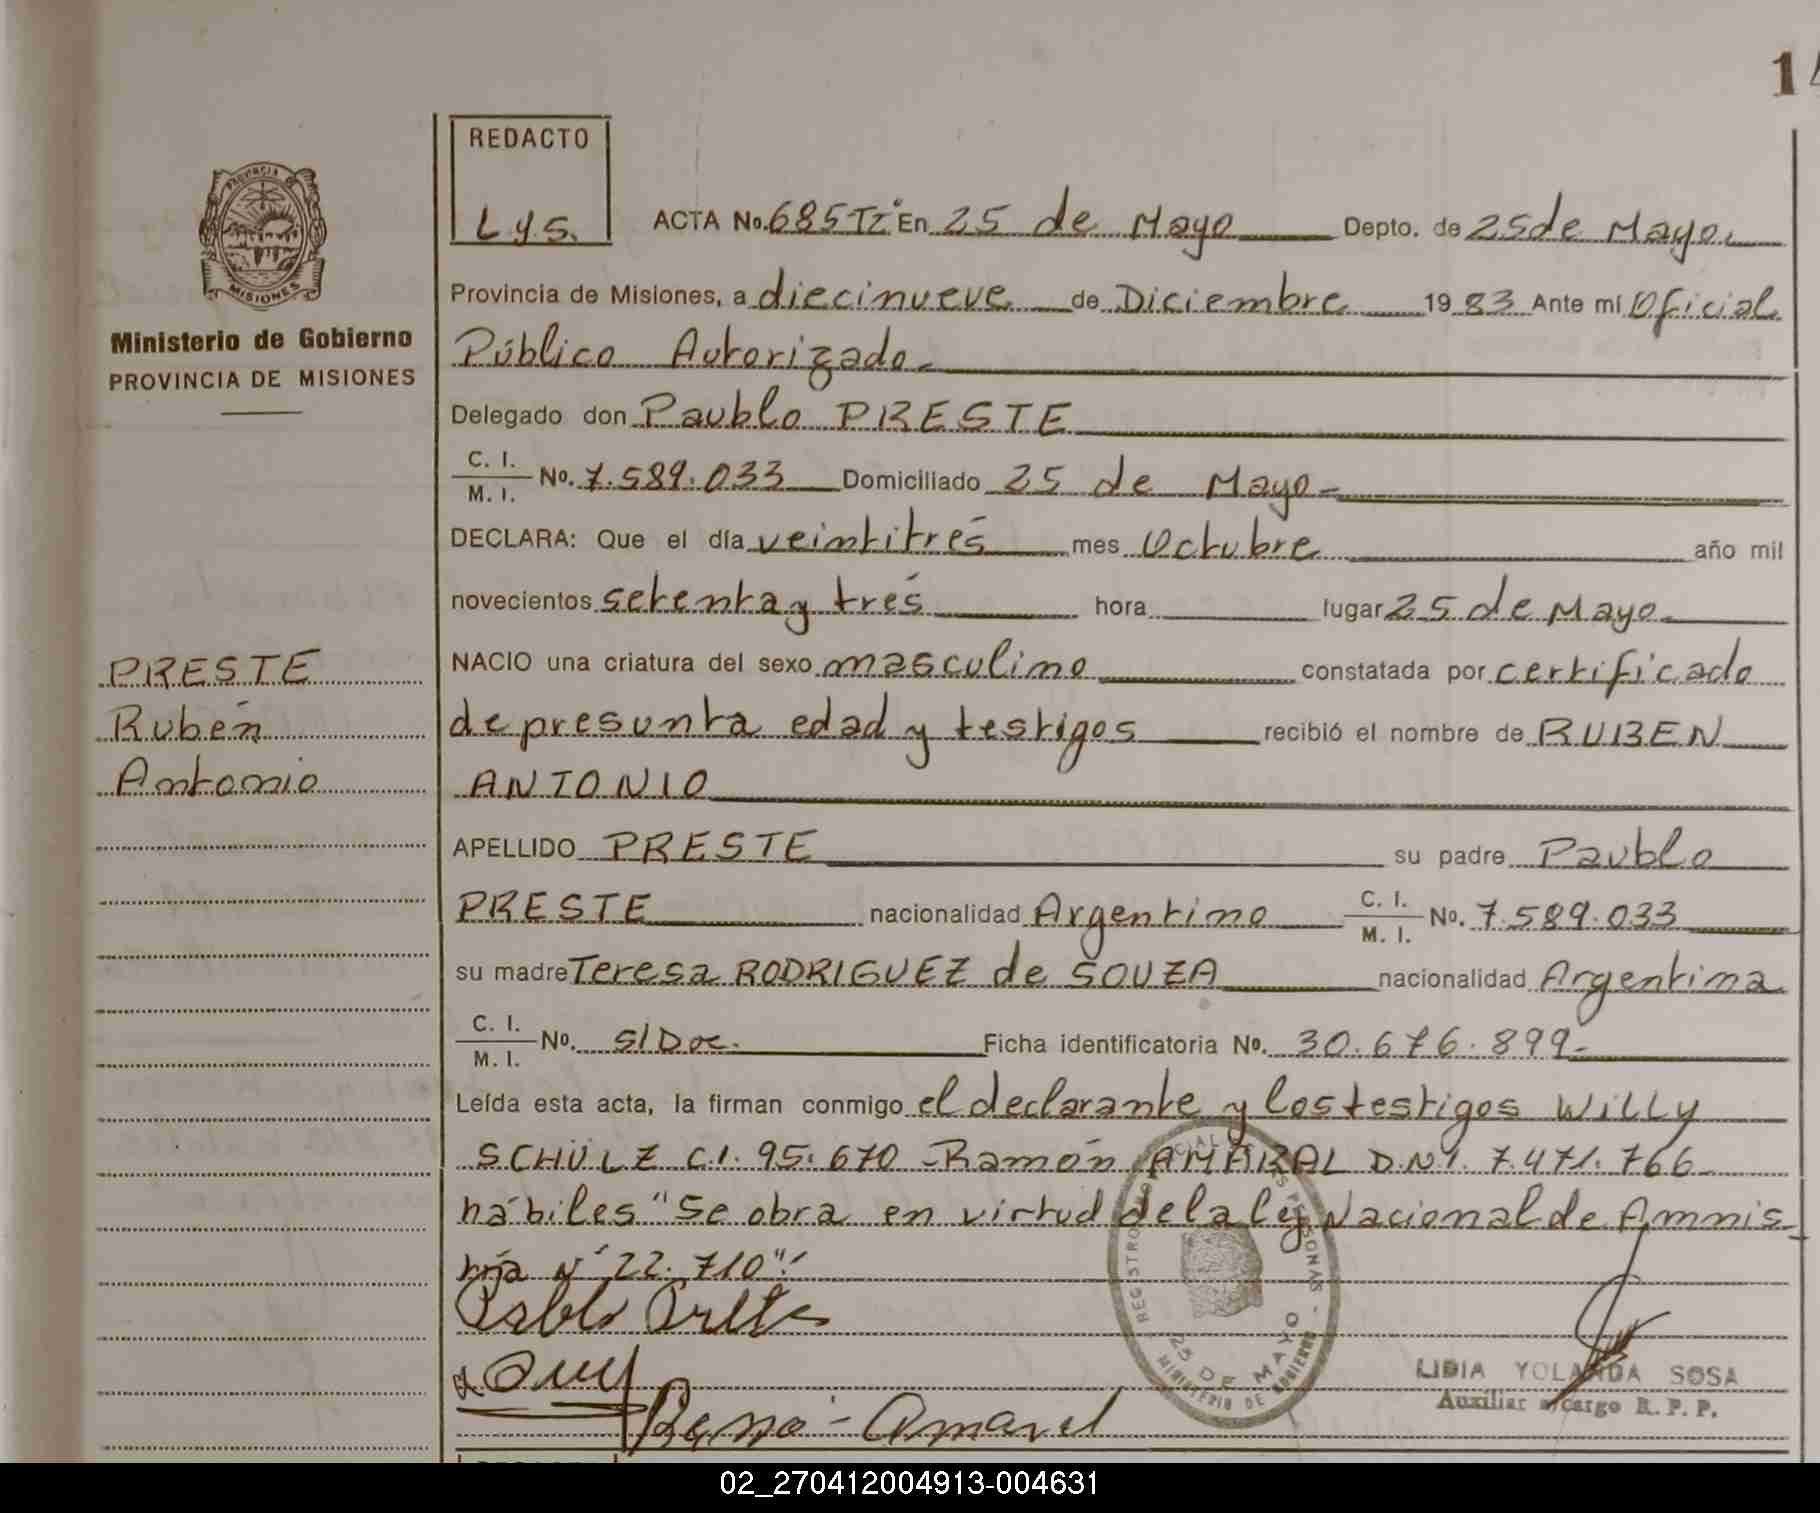 14
REDACTO
L.y.s.
PROVINCIA
MISIONES
Ministerio de Gobierno
PROVINCIA DE MISIONES
ACTA No. 685 Tz° En 25 de Mayo Depto. de 25 de Mayo.
Provincia de Misiones, a diecinueve de Diciembre 1983 Ante mí Oficial
Público Autorizado.
Delegado don Paublo PRESTE
C. I.
M. I. No. 7.589.033 Domiciliado 25 de Mayo-
DECLARA: Que el día veintitrés mes Octubre año mil
novecientos setenta y trés hora lugar 25 de Mayo.
NACIO una criatura del sexo masculino constatada por certificado
de presunta edad y testigos recibió el nombre de RUBEN
ANTONIO
PRESTE
Rubén
Antonio
APELLIDO PRESTE su padre Paublo
PRESTE nacionalidad Argentino C. I. M. I. No. 7.589.033
su madre Teresa RODRIGUEZ de SOUZA nacionalidad Argentina
C. I.
M. I. No. S/Doc. Ficha identificatoria No. 30.676.899-
Leída esta acta, la firman conmigo el declarante y los testigos WILLY
SCHÜLZ C.I. 95.670 - Ramón AMARAL D.N.I. 7.471.766
hábiles "Se obra en virtud de la ley Nacional de Amnis-
tía N° 22.710".
REGISTRO PROVINCIAL DE LAS PERSONAS - MINISTERIO DE GOBIERNO
25 DE MAYO
LIDIA YOLANDA SOSA
Auxiliar a cargo R. P. P.
02_270412004913-004631